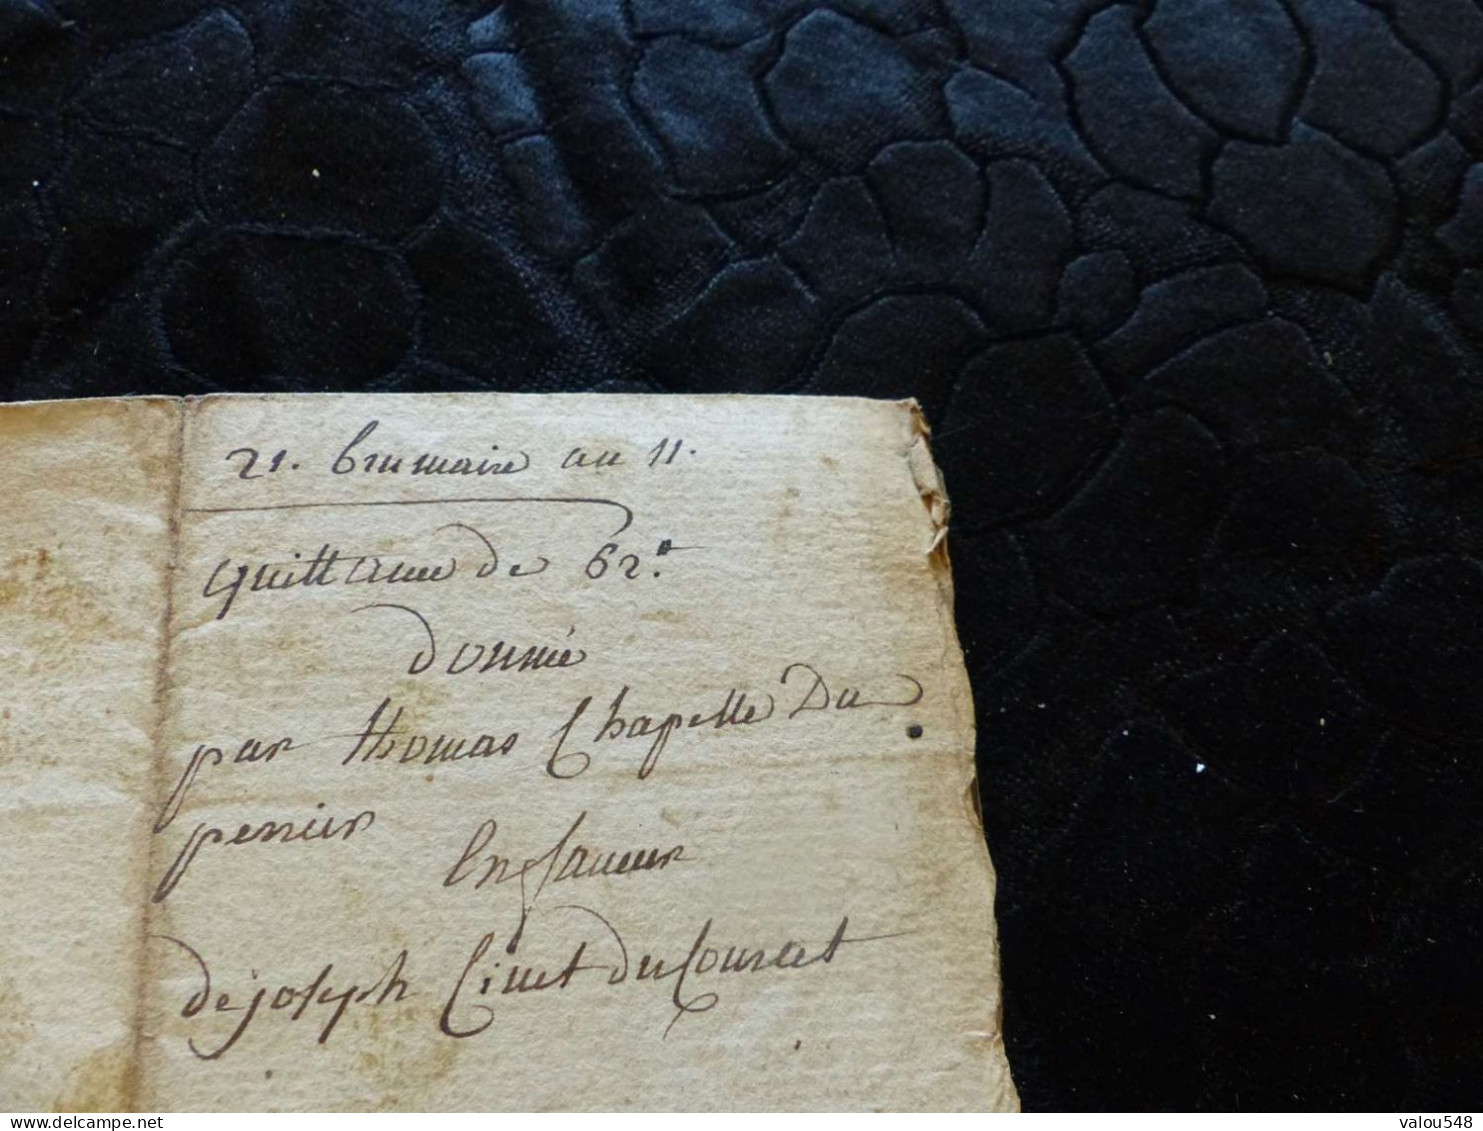 21. brumaire an 11.
quittance de 62.#
donné
par thomas Chapelle Du
perrier
En faveur
de joseph Civet du Courcet
delcampe.net
valou548